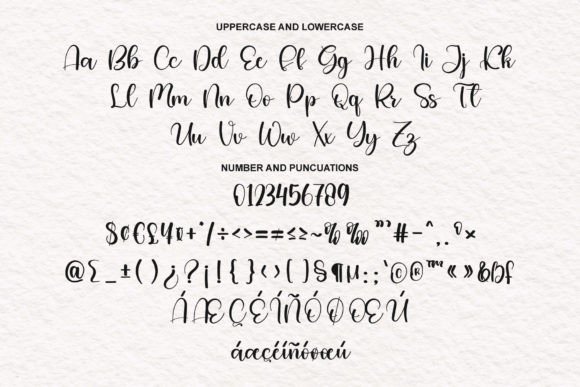 UPPERCASE AND LOWERCASE
Aa Bb Cc Dd Ee Ff Gg Hh Ii Jj Kk
Ll Mm Nn Oo Pp Qq Rr Ss Tt
Uu Vv Ww Xx Yy Zz
NUMBER AND PUNCUATIONS
0123456789
$¢€£¥¤+°/÷<>=≠≤≥~%‰"'#-^,.ºª×
@∑_±()¿?¡!{}‹›[]§¶µ:;`©®™«»
ÁÆÇÉÍÑÓØŒÚ
áæçéíñóøœú